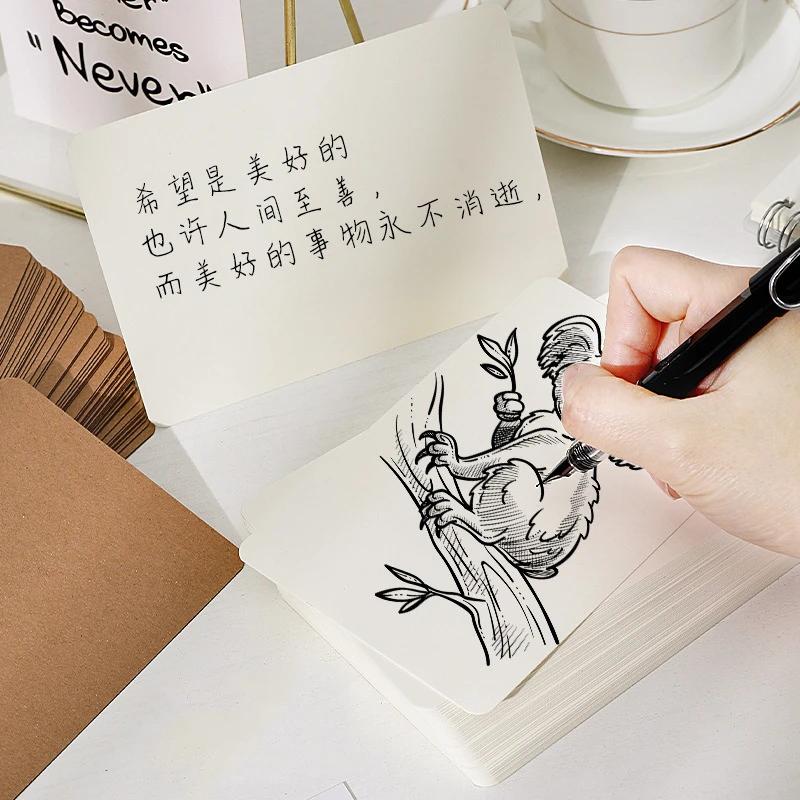 becomes
"Never"
希望是美好的
也许人间至善，
而美好的事物永不消逝，